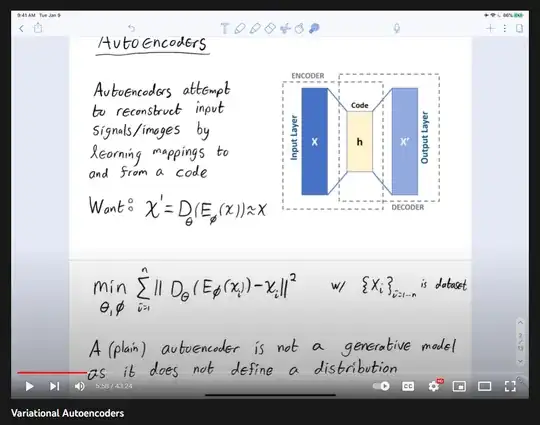 9:41 AM Tue Jan 9
66%
Autoencoders
Autoencoders attempt
to reconstruct input
signals/images by
learning mappings to
and from a code
Want: x' = D_θ(E_φ(x)) ≈ x
ENCODER
Code
Input Layer
X
h
X'
Output Layer
DECODER
min_{θ,φ} Σ_{i=1}^{n} || D_θ(E_φ(x_i)) - x_i ||² w/ {x_i}_{i=1...n} is dataset
A (plain) autoencoder is not a generative model
as it does not define a distribution
5:58 / 43:24
CC
HD
Variational Autoencoders